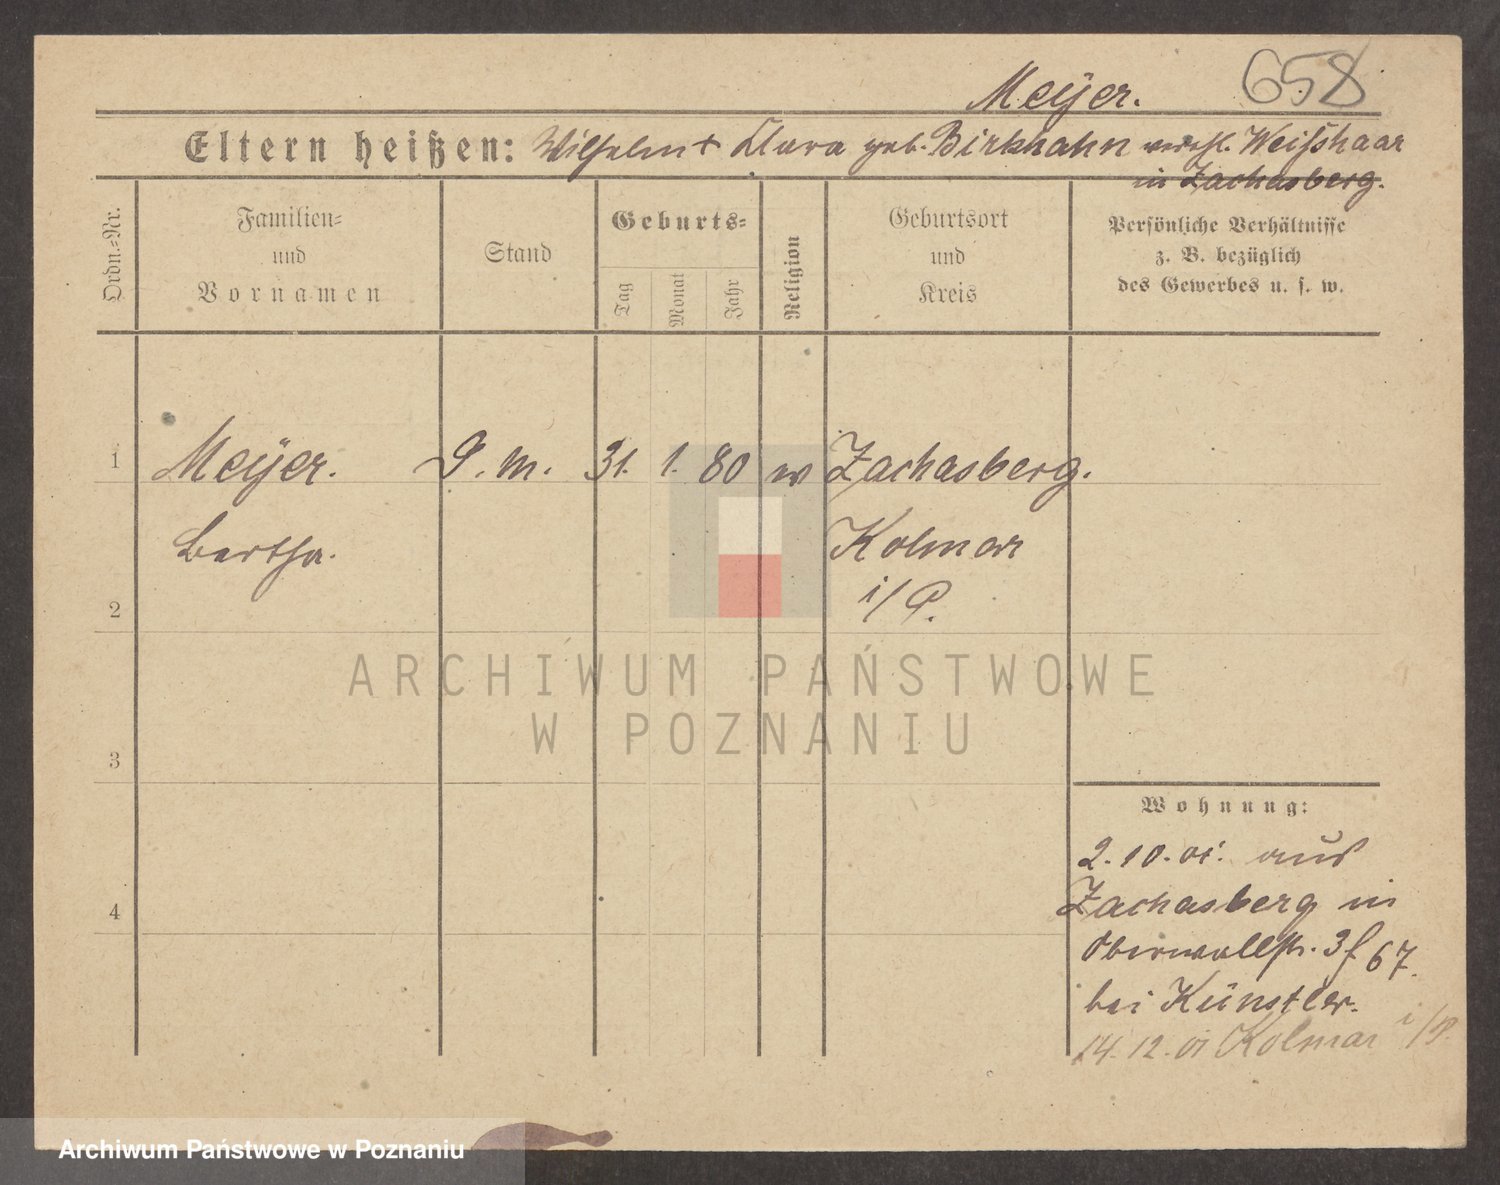 Meÿer.
658
Eltern heißen: Wilhelm + Clara geb. Birkhahn verehl. Weißhaar
in Zachasberg.
Ordn.-Nr.
Familien-
und
Vornamen
Stand
Geburts-
Tag
Monat
Jahr
Religion
Geburtsort
und
Kreis
Persönliche Verhältnisse
z. B. bezüglich
des Gewerbes u. s. w.
1 Meÿer. D. m. 31. 1. 80 w Zachasberg.
Bertha. Kolmar
i/P.
2
ARCHIWUM PAŃSTWOWE
W POZNANIU
3
Wohnung:
2.10.01. aus
Zachasberg in
4
Oberwallstr. 3 67.
bei Künstler.
14.12.01 Kolmar i/P.
Archiwum Państwowe w Poznaniu